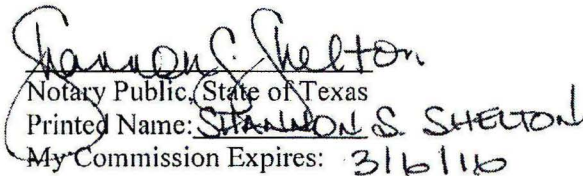 Shannon S. Shelton
Notary Public, State of Texas
Printed Name: SHANNON S. SHELTON
My Commission Expires: 3/6/16